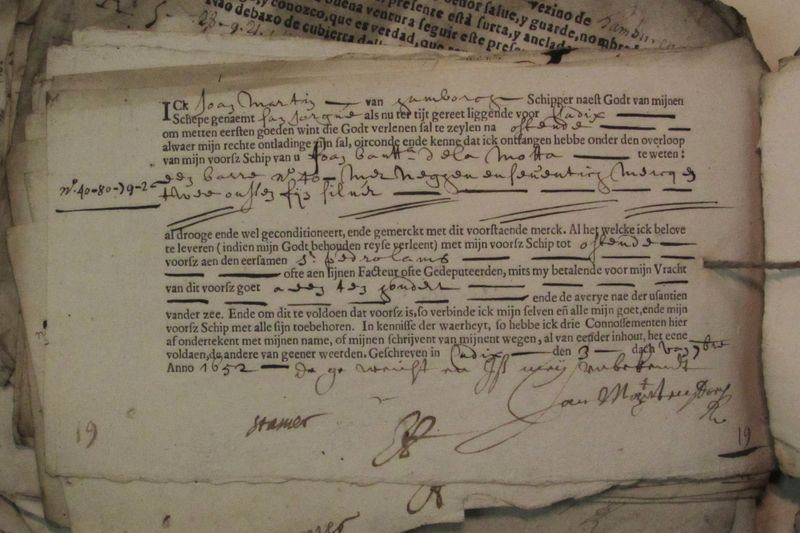 señor salue, y guarde, nombra
presente está surta, y anclada
vezino de
buena ventura seguir este presen
y conozco, que es verdad, que
Não debaxo de cubierta
ICk Joan Martin van Hamborch Schipper naest Godt van mijnen
Schepe genaemt San Jorgué als nu ter tijt gereet liggende voor Cadix
om metten eersten goeden wint die Godt verlenen sal te zeylen na Ostende
alwaer mijn rechte ontladinge zijn sal, oirconde ende kenne dat ick ontfangen hebbe onder den overloop
van mijn voorsz Schip van u Joan bautta dela Motta te weten:
een barre no 40 met neggen en seventich mercq en
twee onssen fijn silver
no. 40-80-79-2
al drooge ende wel geconditioneert, ende gemerckt met dit voorstaende merck. Al het welcke ick belove
te leveren (indien mijn Godt behouden reyse verleent) met mijn voorsz Schip tot Ostende
voorsz aen den eersamen Sr Pedro
ofte aen sijnen Facteur ofte Gedeputeerden, mits my betalende voor mijn Vracht
van dit voorsz goet a een ten hondert
ende de averye nae der usantien
vander zee. Ende om dit te voldoen dat voorsz is, so verbinde ick mijn selven eñ alle mijn goet, ende mijn
voorsz Schip met alle sijn toebehoren. In kennisse der waerheyt, so hebbe ick drie Connossementen hier
af ondertekent met mijnen name, of mijnen schrijvent van mijnent wegen, al van eender inhout, het eene
voldaen, de andere van geener weerden. Geschreven in Cadix den 3 dach van 9bre
Anno 1652 de ge wicht en mij onbekendt
Jan Martensen
19
19